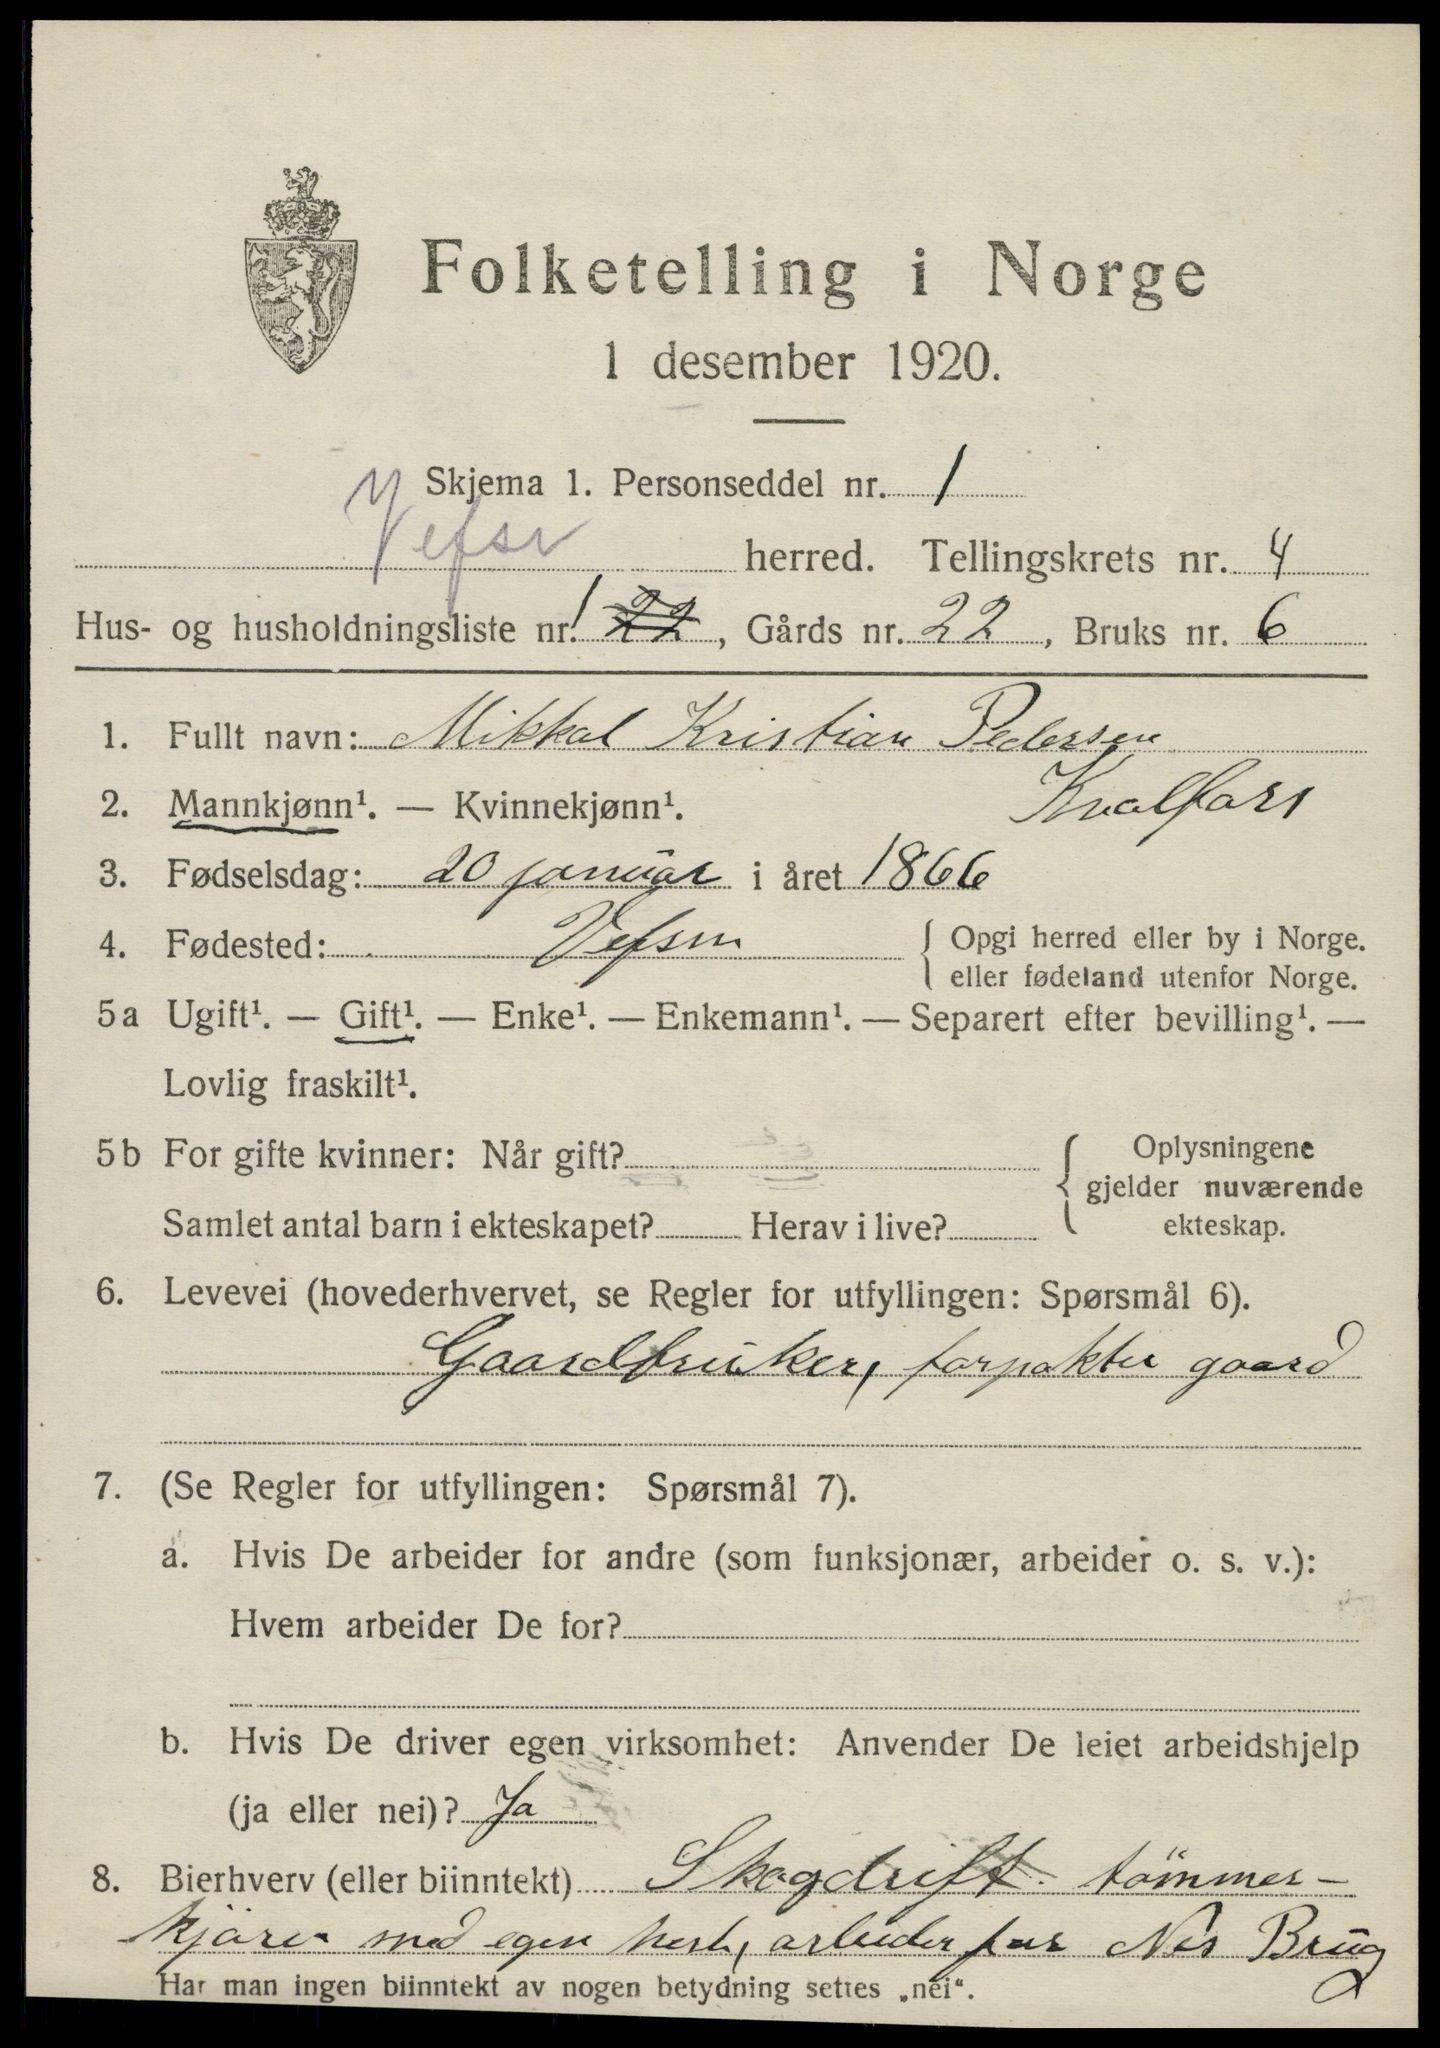 Folketelling i Norge
1 desember 1920.
Skjema 1. Personseddel nr. 1
Vefsn herred. Tellingskrets nr. 4
Hus- og husholdningsliste nr. 1 22, Gårds nr. 22, Bruks nr. 6
1. Fullt navn: Mikkal Kristian Pedersen
Kvalfors
2. Mannkjønn¹. — Kvinnekjønn¹.
3. Fødselsdag: 20 januar i året 1866
4. Fødested: Vefsn { Opgi herred eller by i Norge.
eller fødeland utenfor Norge.
5a Ugift¹. — Gift¹. — Enke¹. — Enkemann¹. — Separert efter bevilling¹. —
Lovlig fraskilt¹.
5b For gifte kvinner: Når gift? { Oplysningene
gjelder nuværende
ekteskap.
Samlet antal barn i ekteskapet? Herav i live?
6. Levevei (hovederhvervet, se Regler for utfyllingen: Spørsmål 6).
Gaardbruker, forpakter gaard
7. (Se Regler for utfyllingen: Spørsmål 7).
a. Hvis De arbeider for andre (som funksjonær, arbeider o. s. v.):
Hvem arbeider De for?
b. Hvis De driver egen virksomhet: Anvender De leiet arbeidshjelp
(ja eller nei)? Ja
8. Bierhverv (eller biinntekt) Skogdrift. tømmer-
kjører med egen hest, arbeider for Nes Brug
Har man ingen biinntekt av nogen betydning settes „nei“.